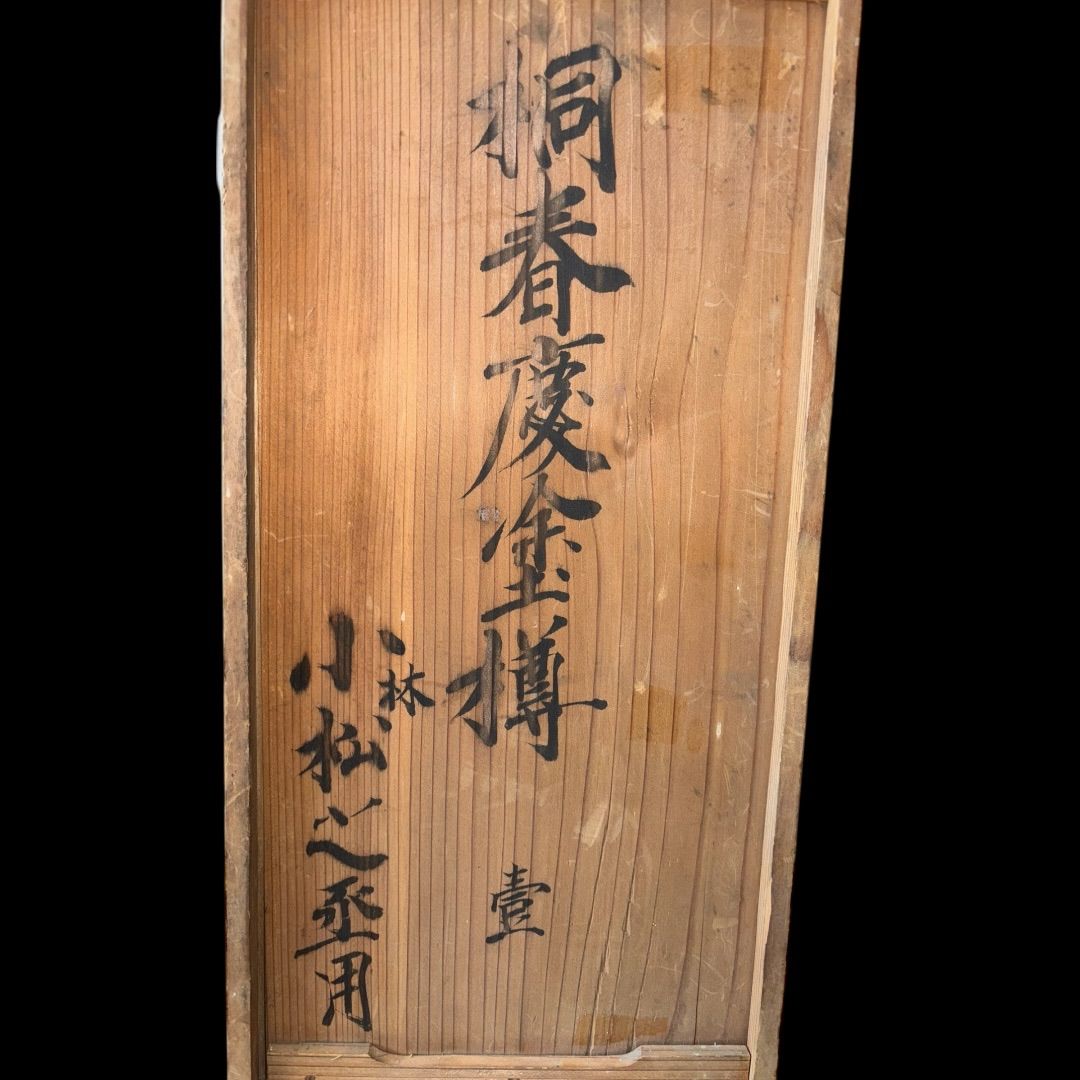 桐春慶塗樽 壹
小林松之丞用